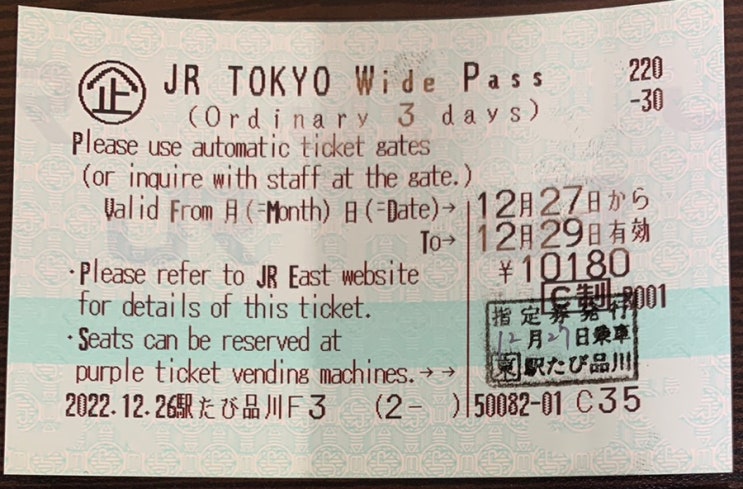 企 JR TOKYO Wide Pass 220
(Ordinary 3 days) -30
Please use automatic ticket gates
(or inquire with staff at the gate.)
Valid From 月(=Month) 日(=Date)→ 12月27日から
To→ 12月29日有効
￥10180
・Please refer to JR East website
for details of this ticket.
C制 R001
指定券発行
12月27日乗車
東 駅たび品川
・Seats can be reserved at
purple ticket vending machines.→→
2022.12.26駅たび品川F3 (2- ) 50082-01 C35